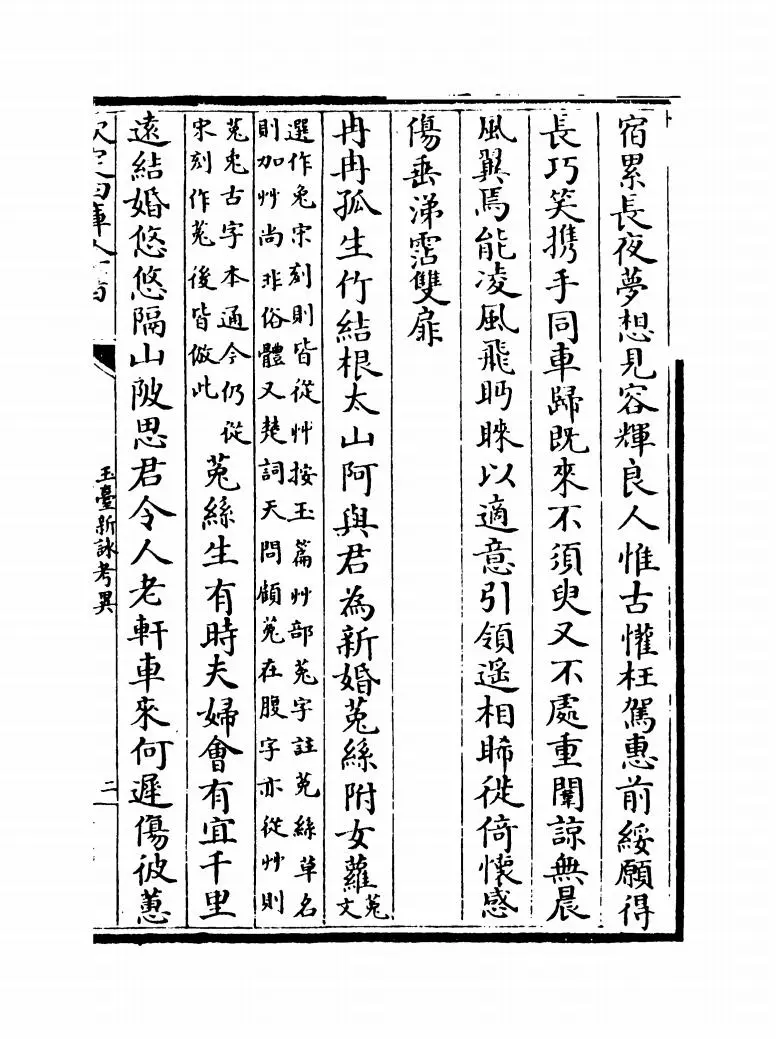 宿累長夜夢想見容輝良人惟古懽枉駕惠前綏願得
長巧笑携手同車歸既來不須臾又不處重闈諒無晨
風翼焉能凌風飛眄睞以適意引領遥相睎徙倚懷感
傷垂涕霑雙扉
冉冉孤生竹結根太山阿與君為新婚菟絲附女蘿菟文
選作兔宋刻則皆從艸按玉篇艸部菟字註菟絲草名
則加艸尚非俗體又楚詞天問顧菟在腹字亦從艸則
菟兎古字本通今仍從
宋刻作菟後皆倣此
菟絲生有時夫婦會有宜千里
遠結婚悠悠隔山陂思君令人老軒車來何遲傷彼蕙
玉臺新詠考異
二